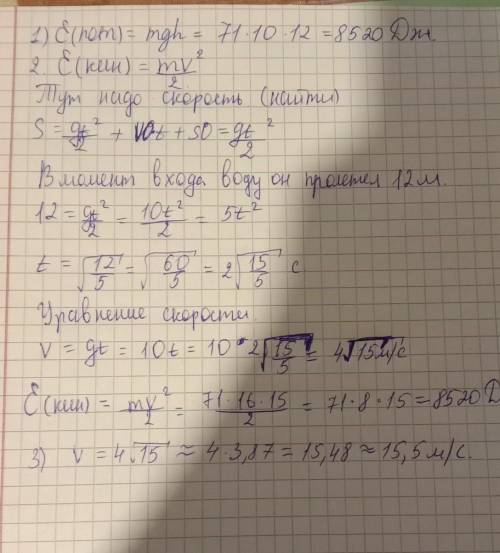 1) E(пот) = mgh = 71·10·12 = 8520 Дж.
2 E(кин) = mv²/2
Тут надо скорость (найти)
S = gt²/2 + v0t + S0 = gt²/2
В момент входа воду он пролетел 12м.
12 = gt²/2 = 10t²/2 = 5t²
t = √12/5 = √60/5 = 2√15/5 с
Уравнение скорости.
v = gt = 10t = 10·2√15/5 = 4√15 м/с
E(кин) = mv²/2 = 71·16·15/2 = 71·8·15 = 8520 Д
3) v = 4√15 ≈ 4·3,87 = 15,48 ≈ 15,5 м/с.